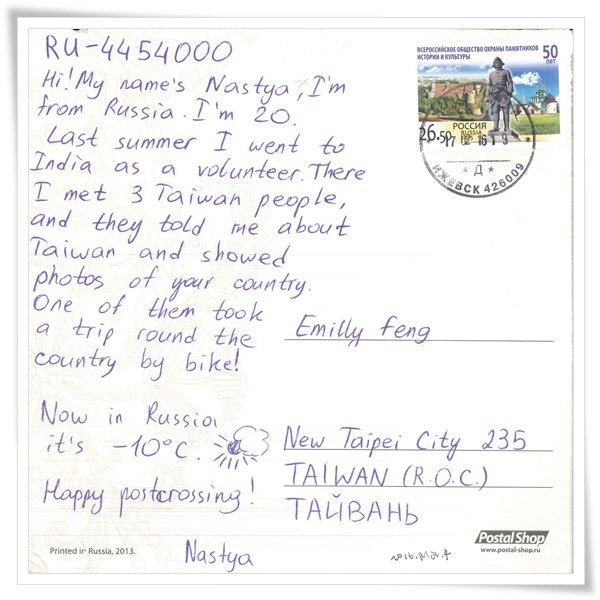 RU-4454000
Hi! My name's Nastya, I'm
from Russia. I'm 20.
Last summer I went to
India as a volunteer. There
I met 3 Taiwan people,
and they told me about
Taiwan and showed
photos of your country.
One of them took
a trip round the
country by bike!
Now in Russia
it's -10°C.
Happy postcrossing!
Nastya
ВСЕРОССИЙСКОЕ ОБЩЕСТВО ОХРАНЫ ПАМЯТНИКОВ
ИСТОРИИ И КУЛЬТУРЫ
50
ЛЕТ
26.50
РОССИЯ
RUSSIA
* Д *
ИЖЕВСК 426009
Emilly Feng
New Taipei City 235
TAIWAN (R.O.C.)
ТАЙВАНЬ
Printed in Russia, 2013.
Postal Shop
www.postal-shop.ru